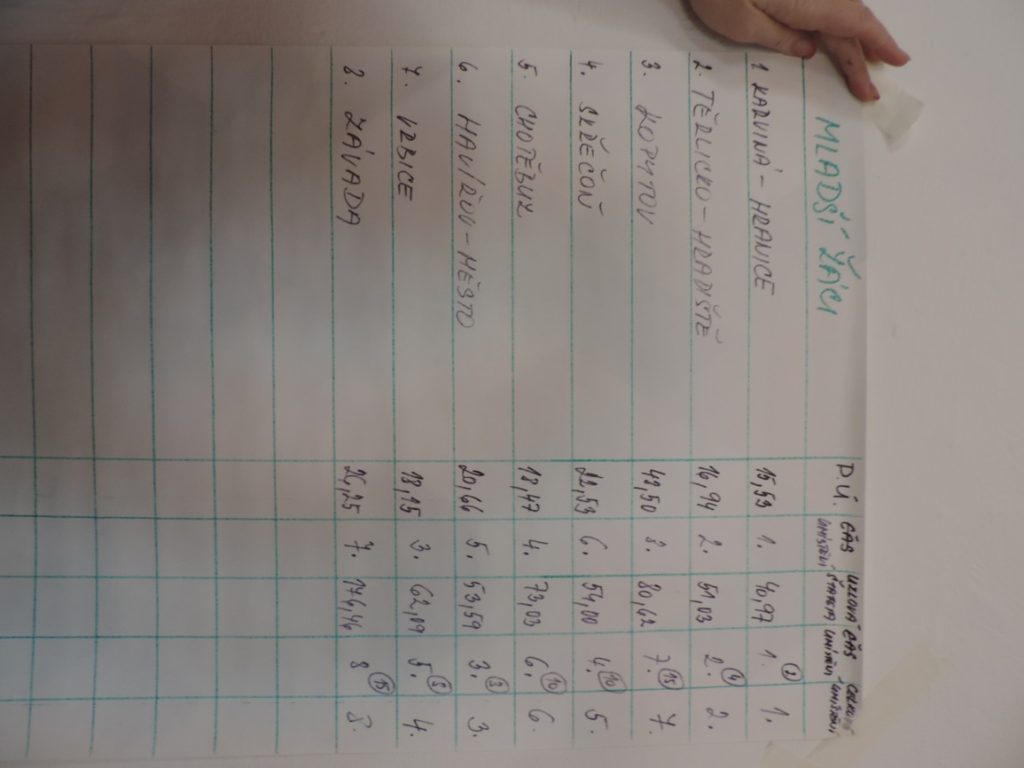 MLADŠÍ ŽÁCI P.Ú. ČAS UMÍSTĚNÍ ČAS UMÍSTĚNÍ
1. KARVINÁ - HRANICE 15,53 1. 40,97 1. 2 1.
2. TĚRLICKO - HRADIŠTĚ 16,94 2. 51,03 2. 4 2.
3. KOPYTOV 42,50 8. 80,62 7. 15 7.
4. STŘEČOŇ 22,53 6. 54,00 4. 10 5.
5. CHOTĚBUZ 18,47 4. 73,03 6. 10 6.
6. HAVÍŘOV - MĚSTO 20,66 5. 53,59 3. 8 3.
7. VRBICE 18,25 3. 62,09 5. 8 4.
8. ZÁVADA 26,25 7. 8 15 8.